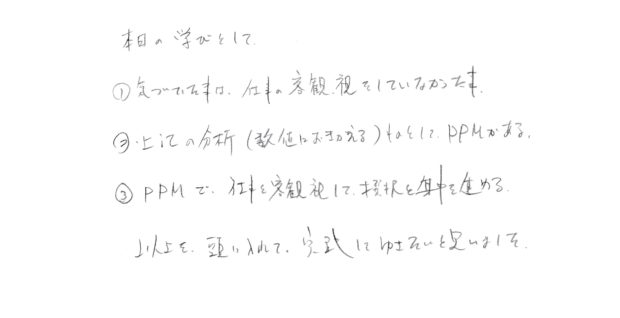 本日の学びとして
①気づいた事は、仕事の客観視をしていなかった事。
②上記の分析(数値におきかえる)ものとして、PPMがある。
③PPMで、仕事を客観視して、択と集中を進める。
以上を、頭に入れて、にゆきたいと思いました。